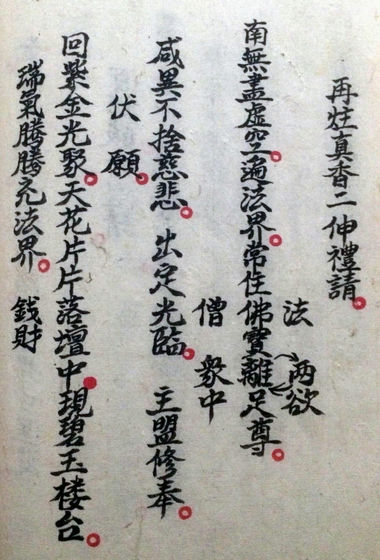 再炷真香二伸禮請
南無盡虛空遍法界常住佛寶離足尊
法 兩欲
僧 衆中
咸異不捨慈悲出定光臨 主盟修奉
伏願
回紫金光聚天花片片落壇中現碧玉楼台
瑞氣騰騰充法界 錢財